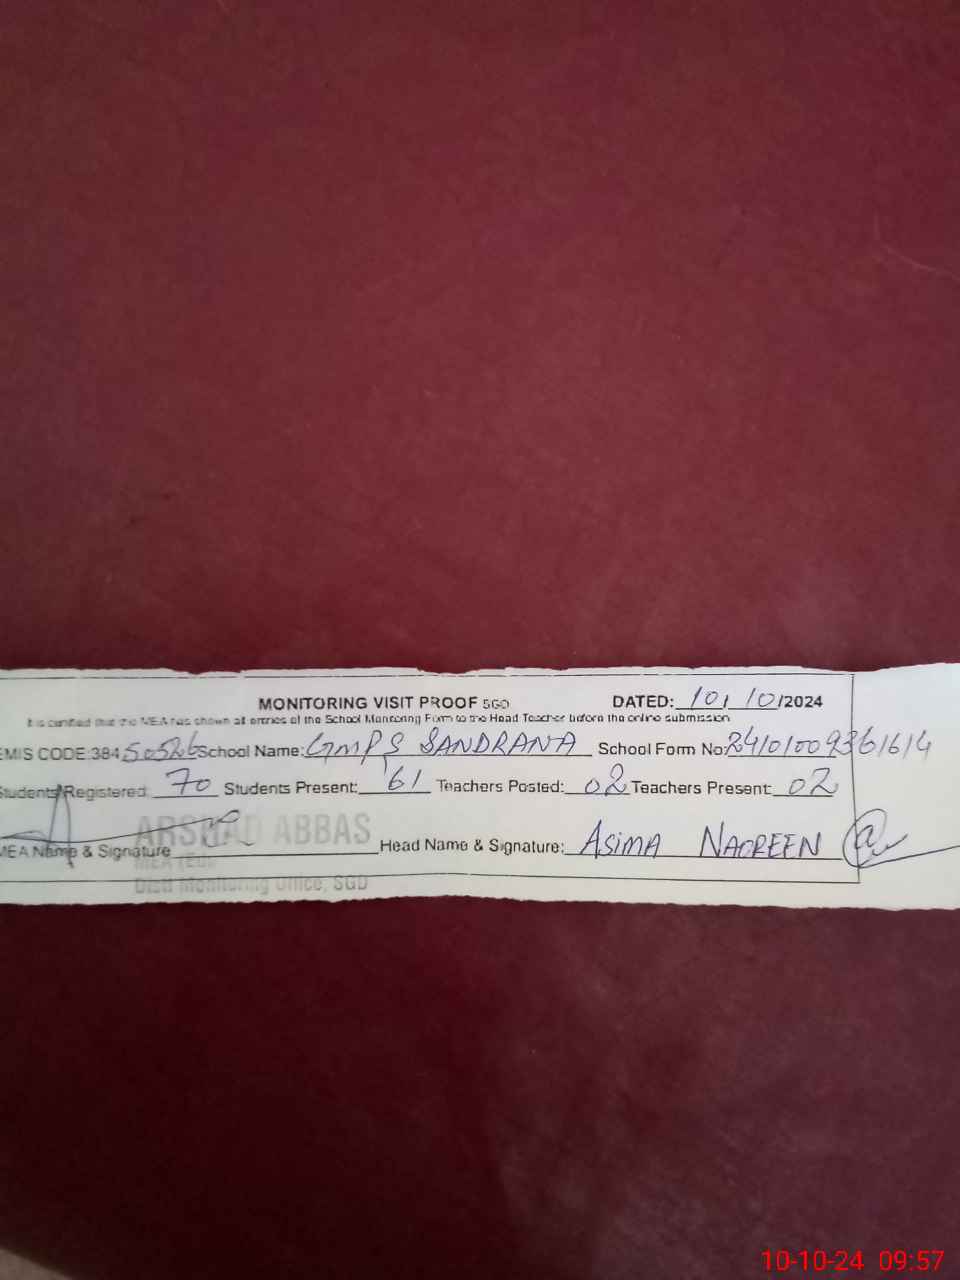 MONITORING VISIT PROOF SGD DATED: 10/10/2024
It is certified that the MEA has shown all entries of the School Monitoring Form to the Head Teacher before the online submission
EMIS CODE:384 50526 School Name: GMPS SANDRANA School Form No: 24101009361614
Students Registered: 70 Students Present: 61 Teachers Posted: 02 Teachers Present: 02
ARSHAD ABBAS
MEA Name & Signature Head Name & Signature: ASIMA NAOREEN
MEA (EDU)
Distt Monitoring Office, SGD
10-10-24 09:57